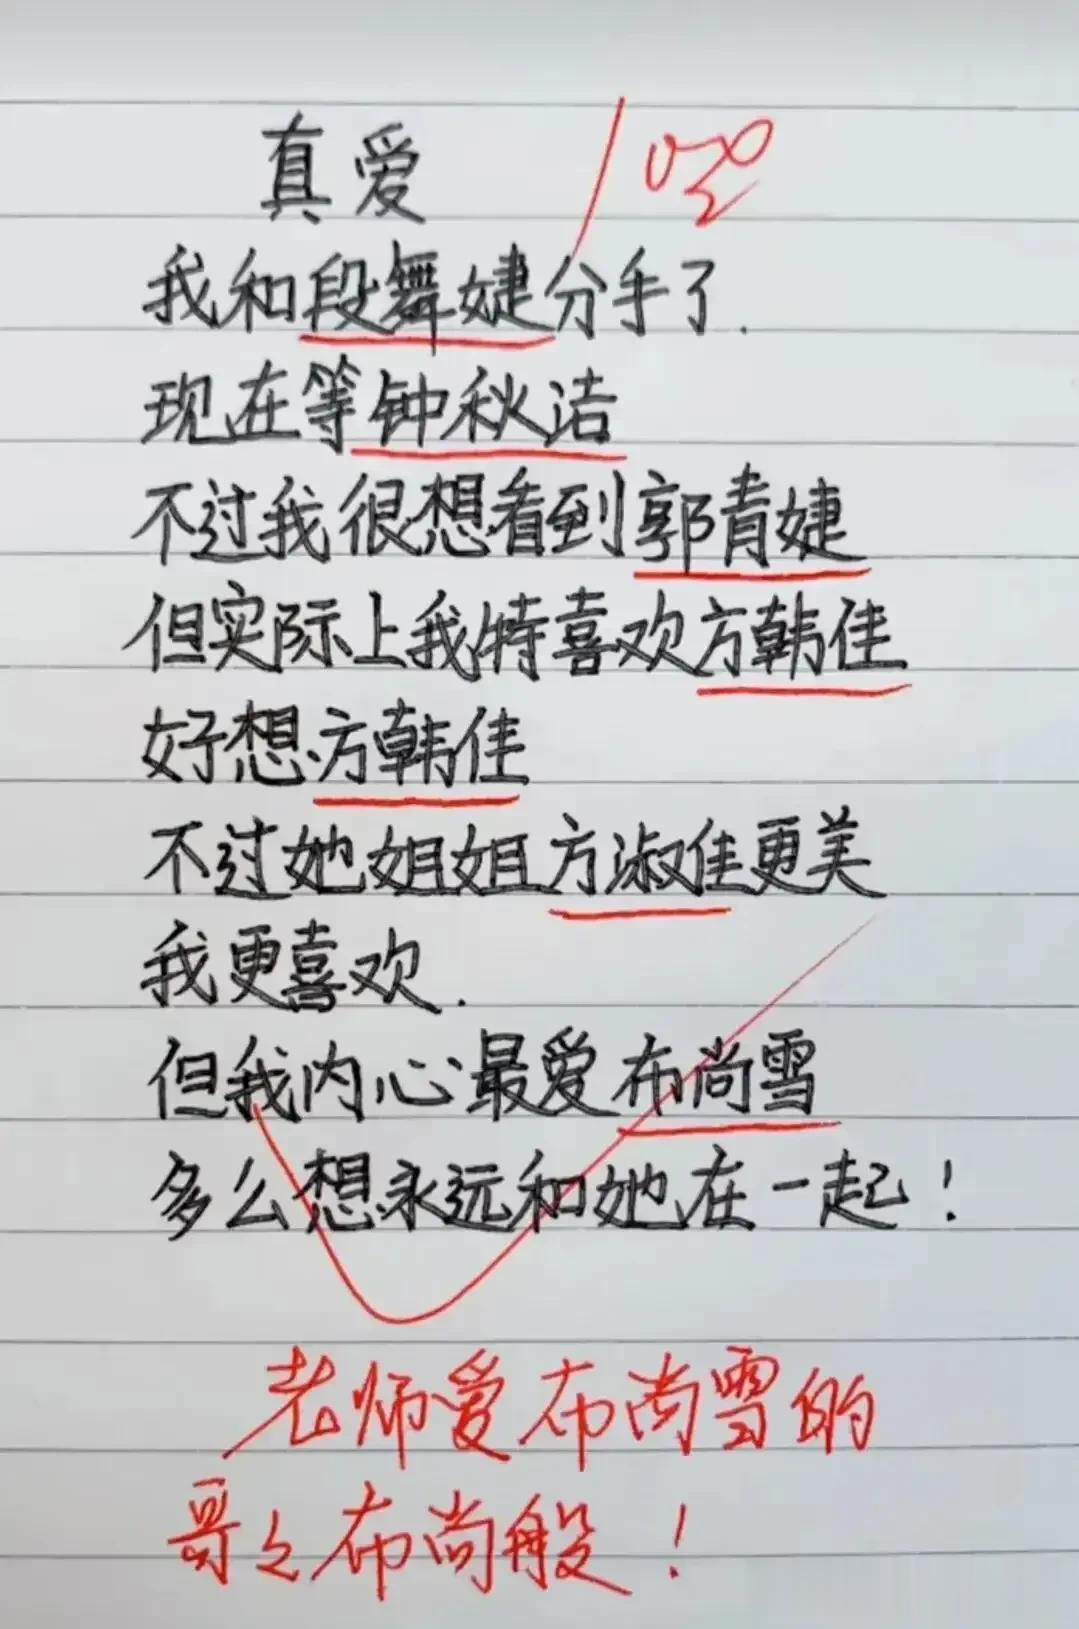 真爱
我和段舞婕分手了.
现在等钟秋洁
不过我很想看到郭青婕
但实际上我特喜欢方韩佳
好想方韩佳
不过她姐姐方淑佳更美
我更喜欢.
但我内心最爱布尚雪
多么想永远和她在一起！
老师爱布尚雪的
哥哥布尚般！